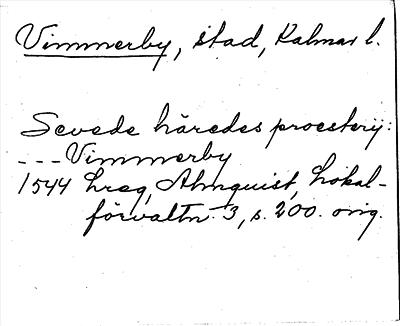 Vimmerby, stad, Kalmar l.
Sevede häredes proesterij:
---Vimmerby
1544 Lreg, Almquist, Lokal-
förvaltn 3, s. 200. orig.